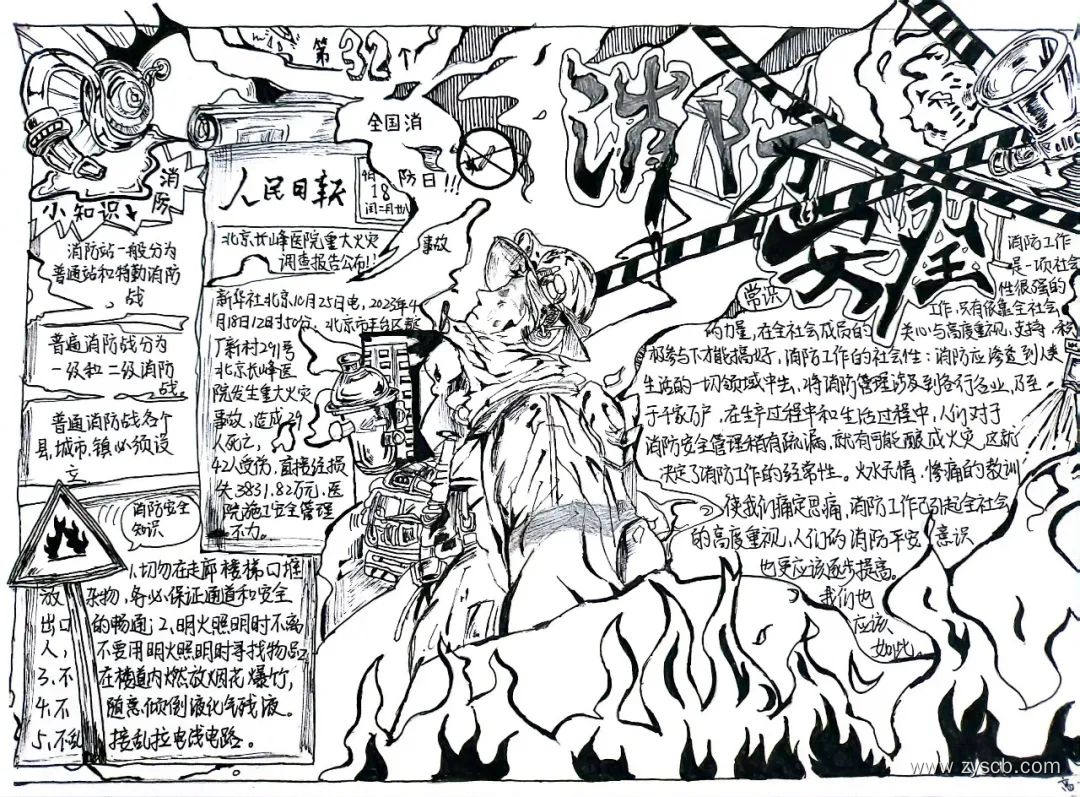 第32个
全国消
防日!!!
消防
安全
消防
小知识
消防站一般分为
普通站和特勤消防
战
普通消防战分为
一级和二级消防
战
普通消防战各个
县,城市,镇必须设
立
人民日报
18
闰二月廿八
北京长峰医院重大火灾
调查报告公布!!
新华社北京10月25日电,2023年4
月18日12时50分,北京市丰台区靛
厂新村291号
北京长峰医
院发生重大火灾
事故,造成29
人死亡,
42人受伤,直接经损
失3831.82万元,医
院施工安全管理
不力。
事故
消防安全
知识
1、切勿在走廊楼梯口堆
放杂物,务必保证通道和安全
出口的畅通;2、明火照明时不离
人,不要用明火照明时寻找物品
3、不在楼道内燃放烟花爆竹,
4、不随意倾倒液化气残液。
5、不乱接乱拉电线电路。
常识
消防工作
是一项社会
性很强的
工作,只有依靠全社会
的力量,在全社会成员的关心与高度重视,支持,积
极参与下才能搞好,消防工作的社会性:消防应渗透到人类
生活的一切领域中去,将消防管理涉及到各行各业,乃至
于千家万户,在生产过程中和生活过程中,人们对于
消防安全管理稍有疏漏,就有可能酿成火灾,这就
决定了消防工作的经常性。火水无情,惨痛的教训
使我们痛定思痛,消防工作已引起全社会
的高度重视,人们的消防平安意识
也更应该逐步提高。
我们也
应该
如此。
www.zyscb.com